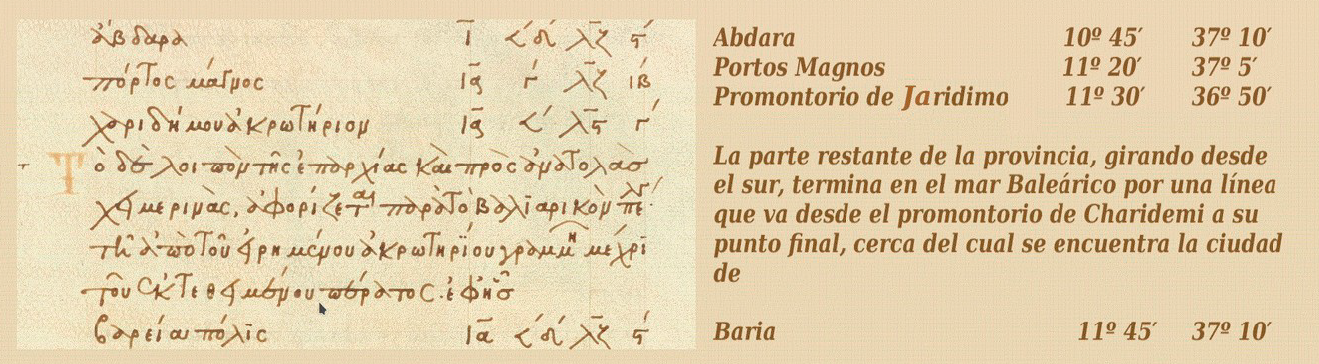 ἄβδαρα ῑ ∠΄δ΄ λζ ϛ΄
πόρτος μάγνος γ΄ λζ ιβ
χαριδήμου ἀκρωτήριον ∠΄ λϛ
Τὸ δὲ λοιπὸν τῆς ἐπαρχίας καὶ πρὸς ἀνατολὰς
ἀφορίζεται παρὰ τὸ βαλιαρικὸν
ἀπὸ τοῦ εἰρημένου ἀκρωτηρίου γραμμῆ μέχρι
τοῦ ἐκτεθειμένου πέρατος. ἐφ' ἧς
βαρεία πόλις ια ∠΄δ΄ λζ ϛ΄
Abdara 10º 45′ 37º 10′
Portos Magnos 11º 20′ 37º 5′
Promontorio de Jaridimo 11º 30′ 36º 50′
La parte restante de la provincia, girando desde
el sur, termina en el mar Baleárico por una línea
que va desde el promontorio de Charidemi a su
punto final, cerca del cual se encuentra la ciudad
de
Baria 11º 45′ 37º 10′